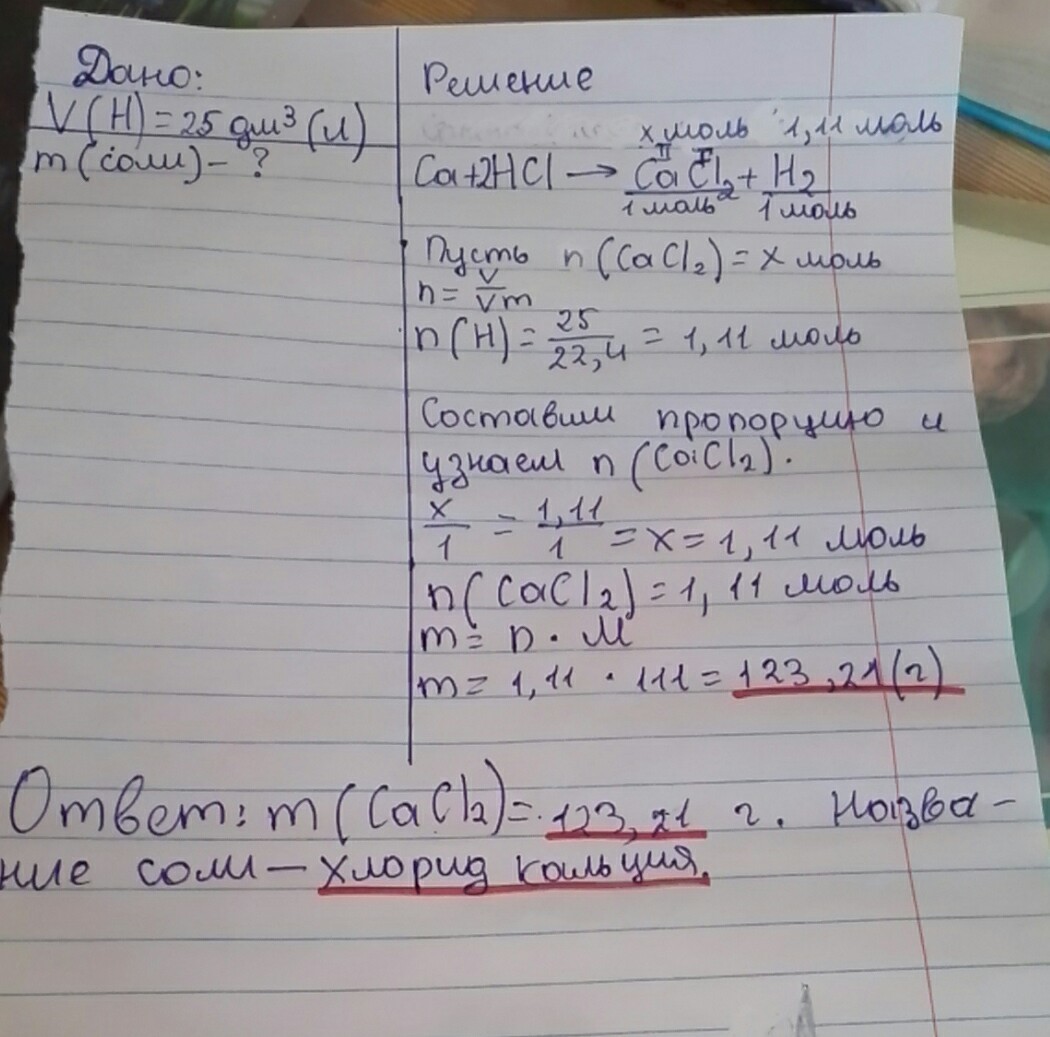 Дано:
V(H)=25 дм³ (л)
m(соли) – ?
Решение
х моль 1,11 моль
II I
Ca+2HCl → CaCl₂ + H₂
1 моль 1 моль
Пусть n(CaCl₂) = х моль
n = V/Vm
n(H) = 25/22,4 = 1,11 моль
Составим пропорцию и
узнаем n(CaCl₂).
x/1 = 1,11/1 = x = 1,11 моль
n(CaCl₂) = 1,11 моль
m = n · M
m = 1,11 · 111 = 123,21(г)
Ответ: m(CaCl₂) = 123,21 г. Назва-
ние соли – хлорид кальция.